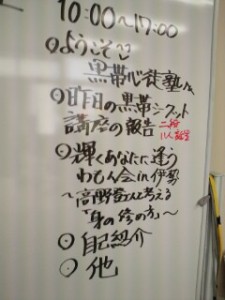 10:00~17:00
◎ようこそ
黒帯心徒塾へ
◎昨日の黒帯シークレット
講座の報告
◎輝くあなたに逢う
わもん会in伊勢
~高野登さんと考える
「身の修め方」~
◎自己紹介
◎他